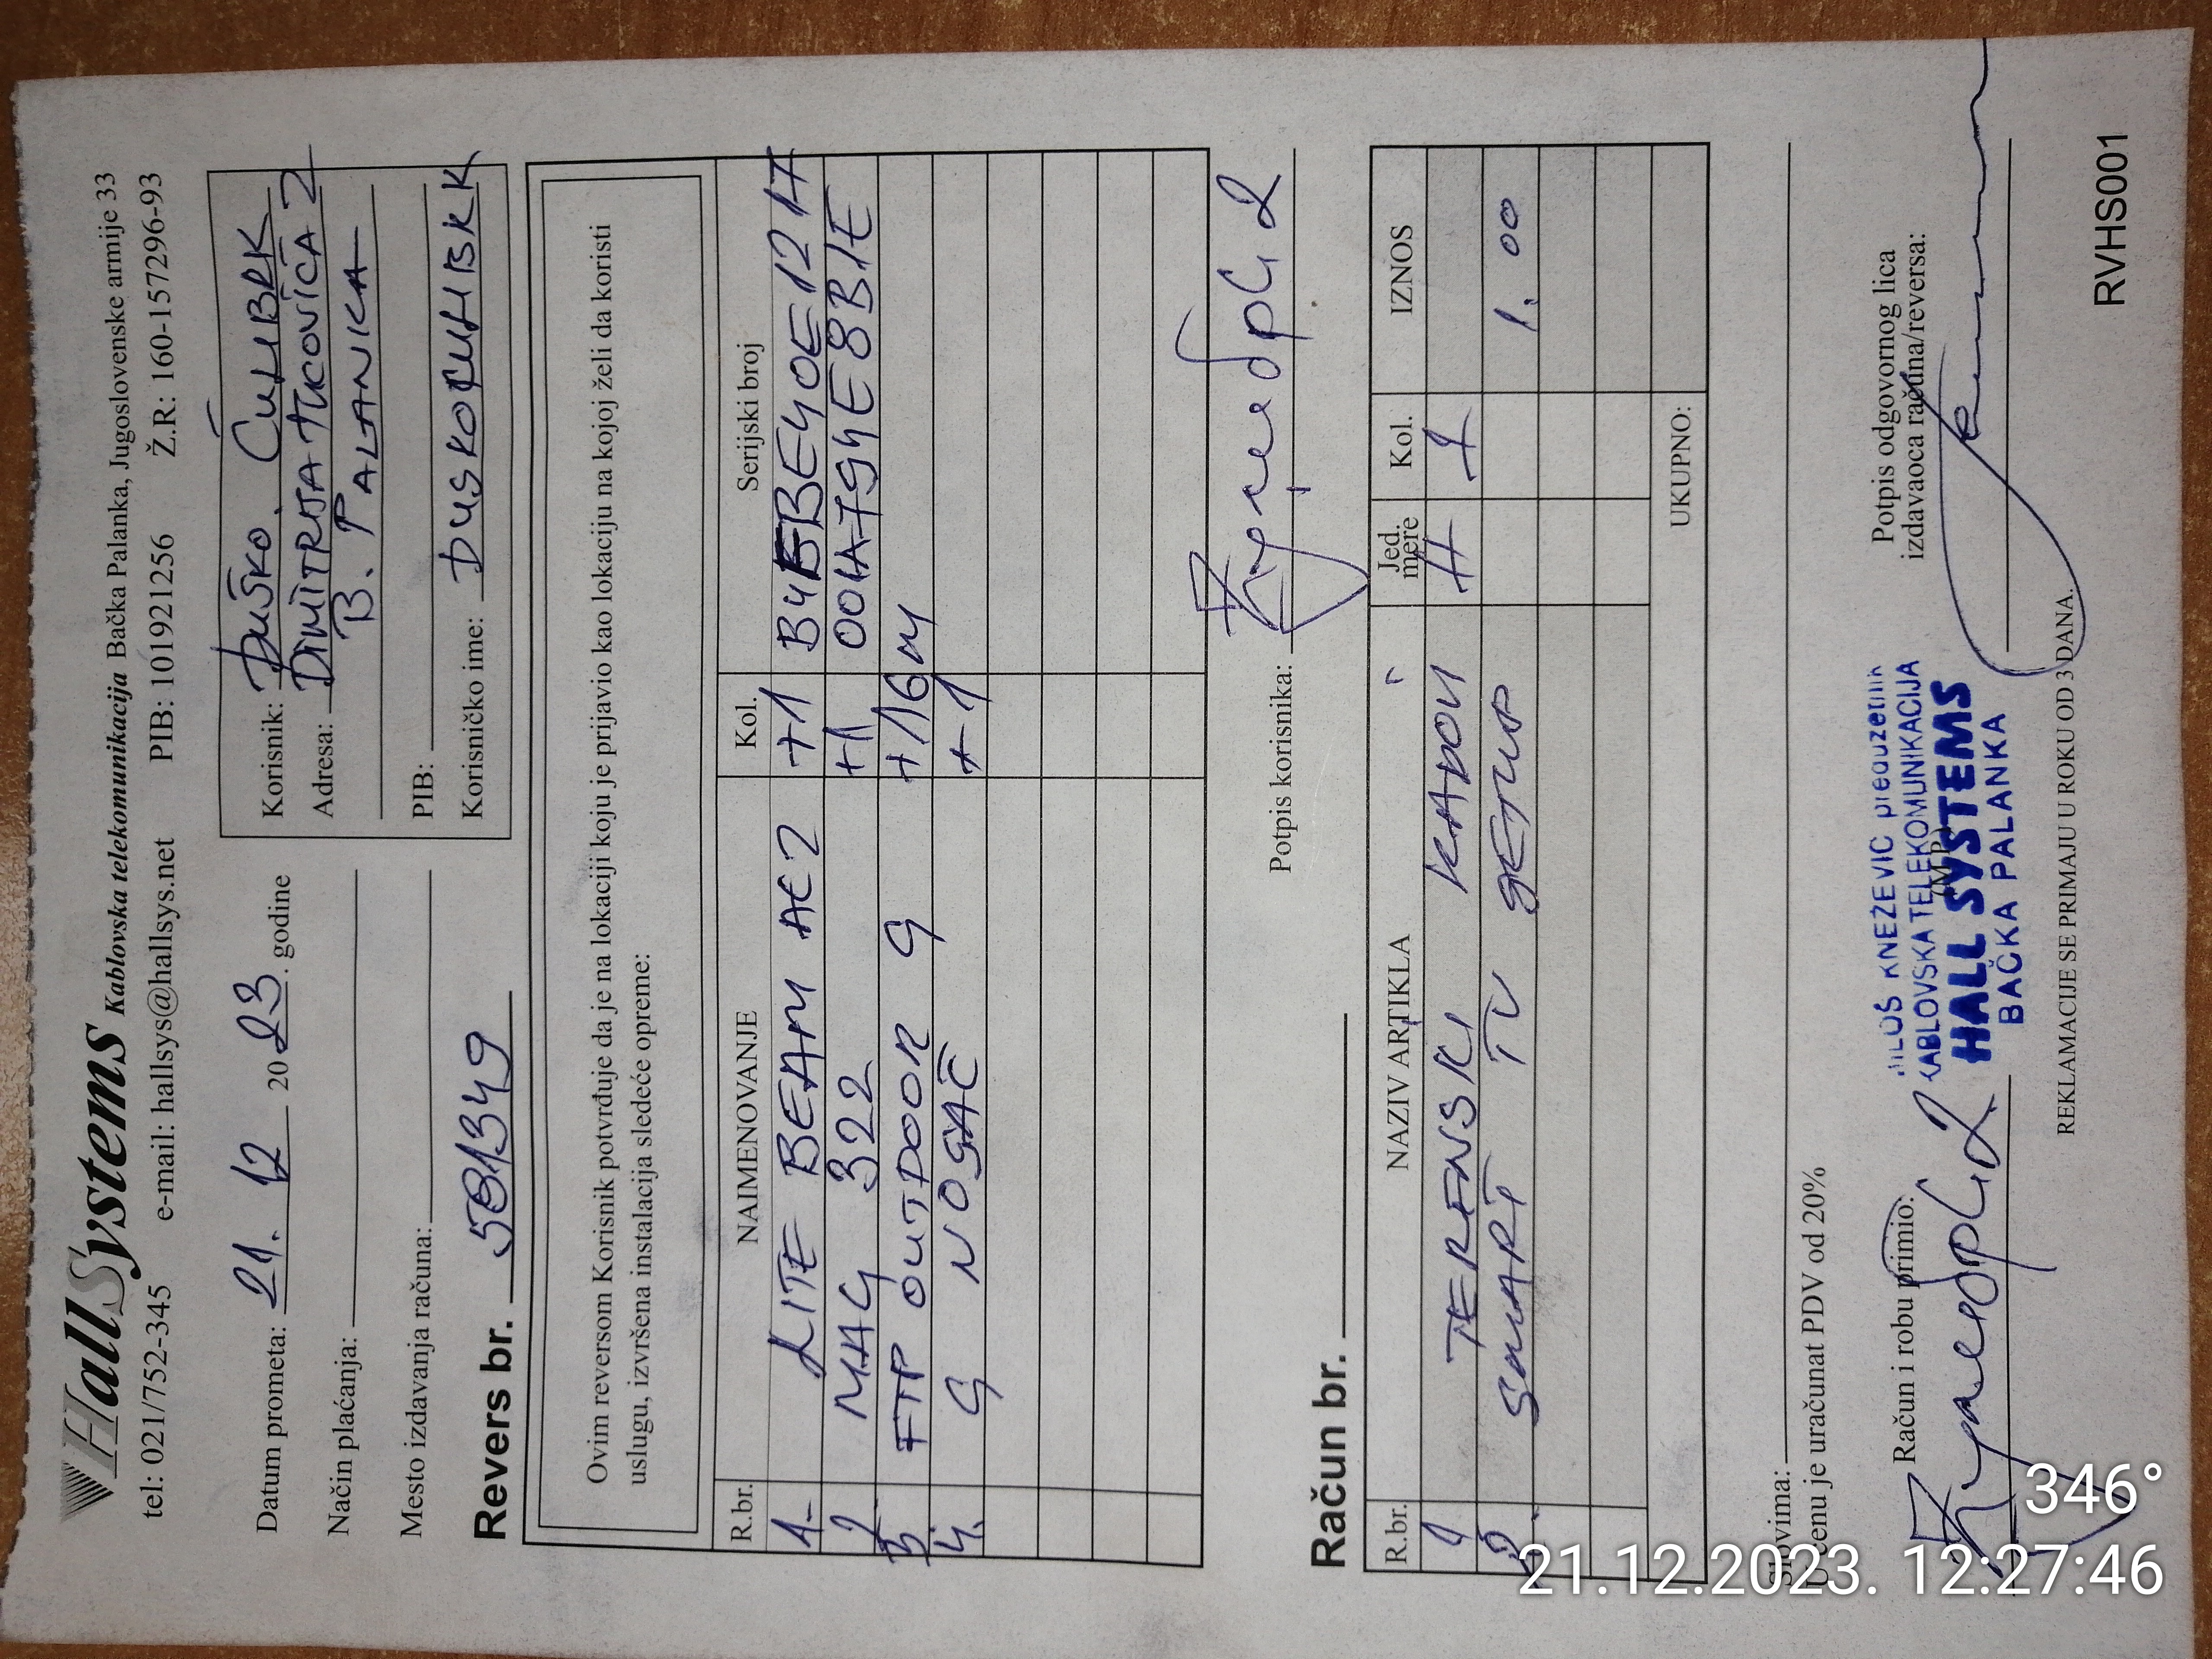 HallSystems Kablovska telekomunikacija Bačka Palanka, Jugoslovenske armije 33
tel: 021/752-345 e-mail: hallsys@hallsys.net PIB: 101921256 Ž.R: 160-157296-93
Datum prometa: 21. 12 2023. godine
Način plaćanja:
Mesto izdavanja računa:
Korisnik: DUŠKO ČULIBRK
Adresa: DIMITRIJA TUCOVIĆA 2
B. PALANKA
PIB:
Korisničko ime: DUSKOCULIBRK
Revers br. 581349
Ovim reversom Korisnik potvrđuje da je na lokaciji koju je prijavio kao lokaciju na kojoj želi da koristi
uslugu, izvršena instalacija sledeće opreme:
R.br. NAIMENOVANJE Kol. Serijski broj
1. LITE BEAM AC2 +1
2 MAG 322 +1
3 FTP OUTDOOR G +16m
4. G NOSAČ +1
Potpis korisnika:
Račun br.
R.br. NAZIV ARTIKLA Jed. mere Kol. IZNOS
1 TERENSKI 1
2. SMART TV SETUP 1.00
UKUPNO:
Slovima:
U cenu je uračunat PDV od 20%
Račun i robu primio:
(M.P.)
MILOŠ KNEŽEVIĆ preduzetnik
KABLOVSKA TELEKOMUNIKACIJA
HALL SYSTEMS
BAČKA PALANKA
Potpis odgovornog lica
izdavaoca računa/reversa:
REKLAMACIJE SE PRIMAJU U ROKU OD 3 DANA.
RVHS001
346°
21.12.2023. 12:27:46